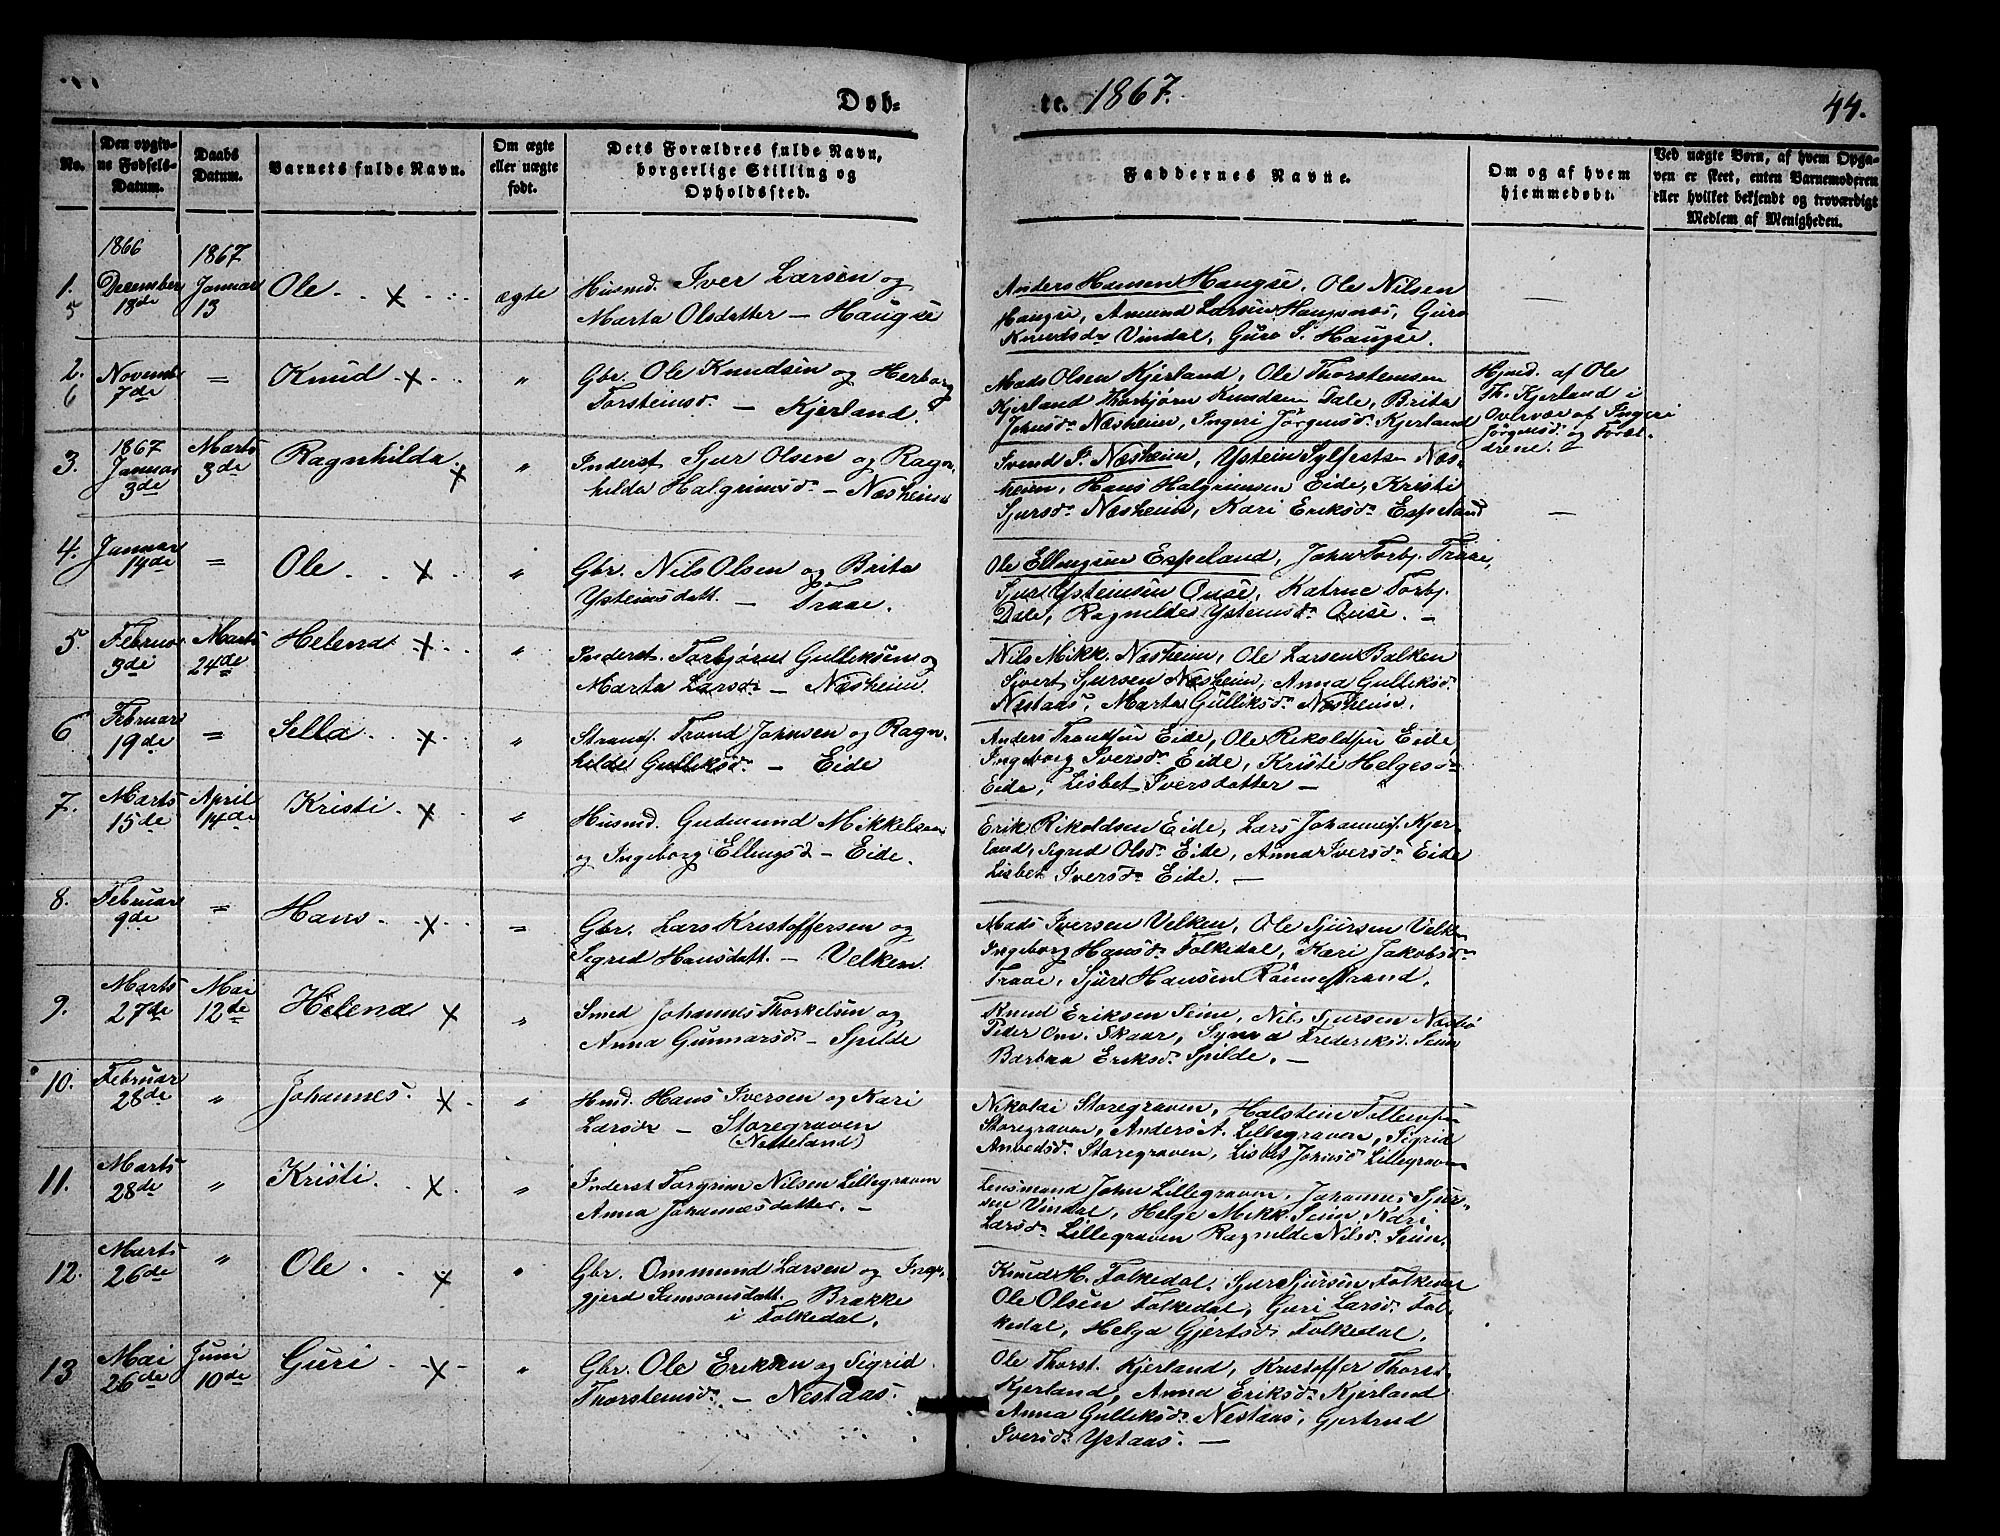 Døb-
te. 1867.
44.
No.
Den opgiv-
ne Fødsels-
Datum.
Daabs
Datum.
Barnets fulde Navn.
Om ægte
eller uægte
født.
Dets Forældres fulde Navn,
borgerlige Stilling og
Opholdssted.
Faddernes Navne.
Om og af hvem
hjemmedøbt.
Ved uægte Børn, af hvem Opga-
ven er skeet, enten Barnemoderen
eller hvilket bekjendt og troværdigt
Medlem af Menigheden.
1.
5
1866
December
18de
1867
Januar
13
Ole
ægte
Husmd. Iver Larsen og
Marta Olsdatter — Haugse
Anders Hansen Haugse, Ole Nilsen
Haugse, Amund Larsen Haugsnæs, Guro
Knudsdr Vindal, Guro S. Haugse.
—
2.
6
Novembr
7de
=
Knud
"
Gbr. Ole Knudsen og Herborg
Torsteinsd. — Kjerland.
Mads Olsen Kjerland, Ole Thorsteinsen
Kjerland Thorbjørn Knudsen Dale, Brita
Johnsdr Næsheim, Ingeri Jørgensdr Kjerland
Hjmd. af Ole
Th. Kjerland i
Overvær af Ingeri
Jørgensd. og Foræl-
drene.
3.
1867
Januar
3de
Marts
3de
Ragnhilda
"
Inderst Sjur Olsen og Ragn-
hilda Halgrimsd. — Næsheim
Svend S. Næsheim, Ystein Sylfests. Næs-
heim, Hans Halgrimsen Eide, Kristi
Sjursdr Næsheim, Kari Eriksdr Espeland
—
4.
Januar
14de
=
Ole
"
Gbr. Nils Olsen og Brita
Ysteinsdatt. — Traae.
Ole Ellingsen Espeland, John Torbj. Traae,
Sjur Ysteinsen Ouse, Katrine Torbj.
Dale, Ragnilde Ysteinsdr Ouse. —
5.
Februar
3de
Marts
24de
Helena
"
Inderst. Torbjørn Gulliksen og
Marta Larsdr — Næsheim.
Nils Mikk. Næsheim, Ole Larsen Balken
Sivert Sjursen Næsheim, Anna Gulliksd.
Nestaas, Marta Gulliksdr Næsheim.
6
Februar
19de
=
Sella
"
Strands. Trond Johnsen og Ragn-
hilde Gulliksd. — Eide
Anders Trondsen Eide, Ole Rikoldsen Eide,
Ingeborg Iversdr Eide, Kristi Helgesdr
Eide, Lisbet Iversdatter —
7.
Marts
15de
April
14de
Kristi
"
Husmd. Gudmund Mikkelsen
og Ingeborg Ellingsd — Eide.
Erik Rikoldsen Eide, Lars Johannes. Kjer-
land, Sigrid Olsdr Eide, Anna Iversdr Eide
Lisbet Iversdr Eide. —
8.
Februar
9de
=
Hans
=
Gbr. Lars Kristoffersen og
Sigrid Hansdatt. — Velken.
Mads Iversen Velken, Ole Sjursen Velken
Ingeborg Hansdr Folkedal, Kari Jakobsdr
Traae, Sjur Hansen Rønnestrand.
9.
Marts
27de
Mai
12de
Helena
"
Smed Johannes Thorkelsen og
Anna Gunnarsd. — Spilde
Knud Eriksen Seim, Nils Sjursen Næsbø
Peder Om. Skaar, Synva Frederiksd. Seim
Barbra Eriksdr Spilde. —
10.
Februar
28de
"
Johannes
"
Hmd. Hans Iversen og Kari
Larsdr — Storegraven
(Netteland)
Nikolai Storegraven, Halstein Tollevsen
Storegraven, Anders A. Lillegraven, Sigrid
Amundsdr Storegraven, Lisbet Johnsdr Lillegraven
11.
Marts
28de
"
Kristi
"
Inderst Torgrim Nilsen Lillegraven
Anna Johannesdatter. —
Lensmand John Lillegraven, Johannes Sjur-
sen Vindal, Helge Mikk. Seim, Kari
Larsdr Lillegraven Ragnilde Nilsd. Seim.
12.
Marts
26de
"
Ole
"
Gbr. Ommund Larsen og Inge-
gjerd Samsonsdatt. Brække
i Folkedal.
Knud H. Folkedal, Sjur Sjursen Folkedal
Ole Olsen Folkedal, Guri Larsdr Fol-
kedal, Helga Gjertsdr Folkedal.
13
Mai
26de
Juni
10de
Guri
"
Gbr. Ole Eriksen og Sigrid
Thorsteinsdr — Nestaas.
Ole Thorst. Kjerland, Kristoffer Thorst.
Kjerland, Anna Eriksdr Kjerland
Anna Gulliksdr Nestaas, Gjertrud
Iversdr Ystaas. —